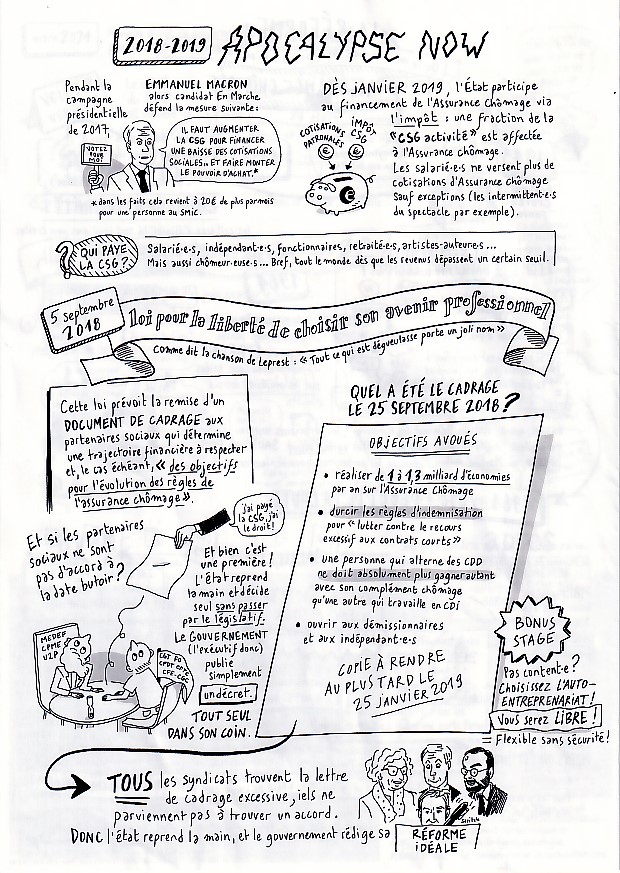 2018-2019 APOCALYPSE NOW
Pendant la
campagne
présidentielle
de 2017,
EMMANUEL MACRON
alors candidat En Marche
défend la mesure suivante :
VOTEZ
POUR
MOI
IL FAUT AUGMENTER
LA CSG POUR FINANCER
UNE BAISSE DES COTISATIONS
SOCIALES.. ET FAIRE MONTER
LE POUVOIR D'ACHAT.*
*dans les faits cela revient à 20€ de plus par mois
pour une personne au SMIC.
DÈS JANVIER 2019, l'État participe
au financement de l'Assurance Chômage via
l'impôt : une fraction de la
"CSG activité" est affectée
à l'Assurance chômage.
Les salarié·e·s ne versent plus de
cotisations d'Assurance Chômage
sauf exceptions (les intermittent·e·s
du spectacle par exemple).
COTISATIONS
PATRONALES
IMPÔT
CSG
€
€
€
? QUI PAYE
LA CSG ?
Salarié·e·s, indépendant·e·s, fonctionnaires, retraité·e·s, artistes-auteure·s ...
Mais aussi chômeur·euse·s ... Bref, tout le monde dès que les revenus dépassent un certain seuil.
5 septembre
2018
loi pour la liberté de choisir son avenir professionnel
Comme dit la chanson de Leprest : « Tout ce qui est dégueulasse porte un joli nom »
Cette loi prévoit la remise d'un
DOCUMENT DE CADRAGE aux
partenaires sociaux qui détermine
une trajectoire financière à respecter
et, le cas échéant, « des objectifs
pour l'évolution des règles de
l'assurance chômage ».
Et si les partenaires
sociaux ne sont
pas d'accord à
la date butoir ?
J'ai payé
la CSG, j'ai
le droit !
Et bien c'est
une première !
l'État reprend
la main et décide
seul sans passer
par le législatif.
Le GOUVERNEMENT
(l'exécutif donc)
publie
simplement
un décret.
TOUT SEUL
DANS SON COIN.
MEDEF
CPME
U2P
CGT FO
CFDT CFTC
CFE-CGC
QUEL A ÉTÉ LE CADRAGE
LE 25 SEPTEMBRE 2018 ?
OBJECTIFS AVOUÉS
• réaliser de 1 à 1,3 milliard d'économies
par an sur l'Assurance Chômage
• durcir les règles d'indemnisation
pour « lutter contre le recours
excessif aux contrats courts »
• une personne qui alterne des CDD
ne doit absolument plus gagner autant
avec son complément chômage
qu'une autre qui travaille en CDI
• ouvrir aux démissionnaires
et aux indépendant·e·s
COPIE À RENDRE
AU PLUS TARD LE
25 JANVIER 2019
BONUS
STAGE
Pas content·e ?
Choisissez L'AUTO-
ENTREPRENARIAT !
Vous serez LIBRE !
= Flexible sans sécurité !
TOUS les syndicats trouvent la lettre
de cadrage excessive, iels ne
parviennent pas à trouver un accord.
DONC l'état reprend la main, et le gouvernement rédige sa
RÉFORME
IDÉALE